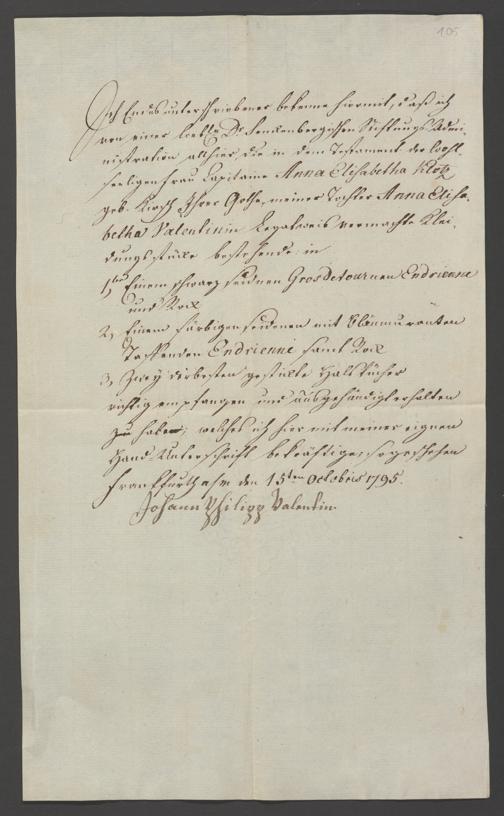 105
Ich Endes unterschriebener bekenne hiermit, daß ich
von einer löbl. Dr. Senckenbergischen Stiftungs Admi-
nistration allhier, die in dem Testament der wohl-
seeligen Frau Capitaine Anna Elisabetha Klotz
geb. Ihrer Gothe, meiner Tochter Anna Elisa-
betha Valentinin Legatweis vermachte Klei-
dungsstücke bestehende in
1) Einem schwarz seidnen Gros de tour nen Endrienne
und Rock
2) Einem färbigen seidenen mit
Endrienne samt Rock
3) Zwey der besten gestickte Halstücher
richtig empfangen und ausgehändigt erhalten
zu haben; welches ich hier mit meiner eignen
Hand-Unterschrift bekräftige. so geschehen
Franckfurth a/m den 15ten Octobris 1795.
Johann Philipp Valentin